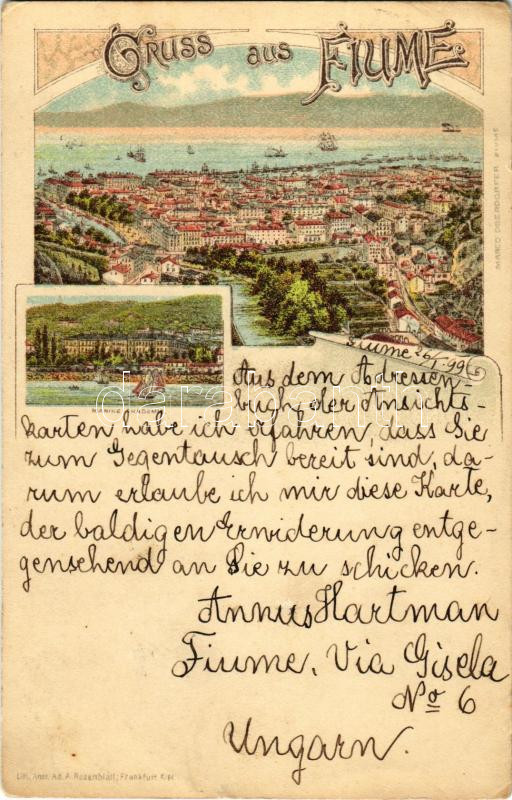 GRUSS AUS FIUME
MARCO OBERDORFER FIUME
MARINE AKADEMIE
Fiume 26/1. 99
Aus dem Adressen-
buch der Ansichts-
karten habe ich erfahren, dass Sie
zum Gegentausch bereit sind, da-
rum erlaube ich mir diese Karte,
der baldigen Erwiderung entge-
gensehend an Sie zu schicken.
Annus Hartman
Fiume, Via Gisela
No 6
Ungarn.
Lith. Anst. Ad. A. Rosenblatt, Frankfurt
darabanth.com